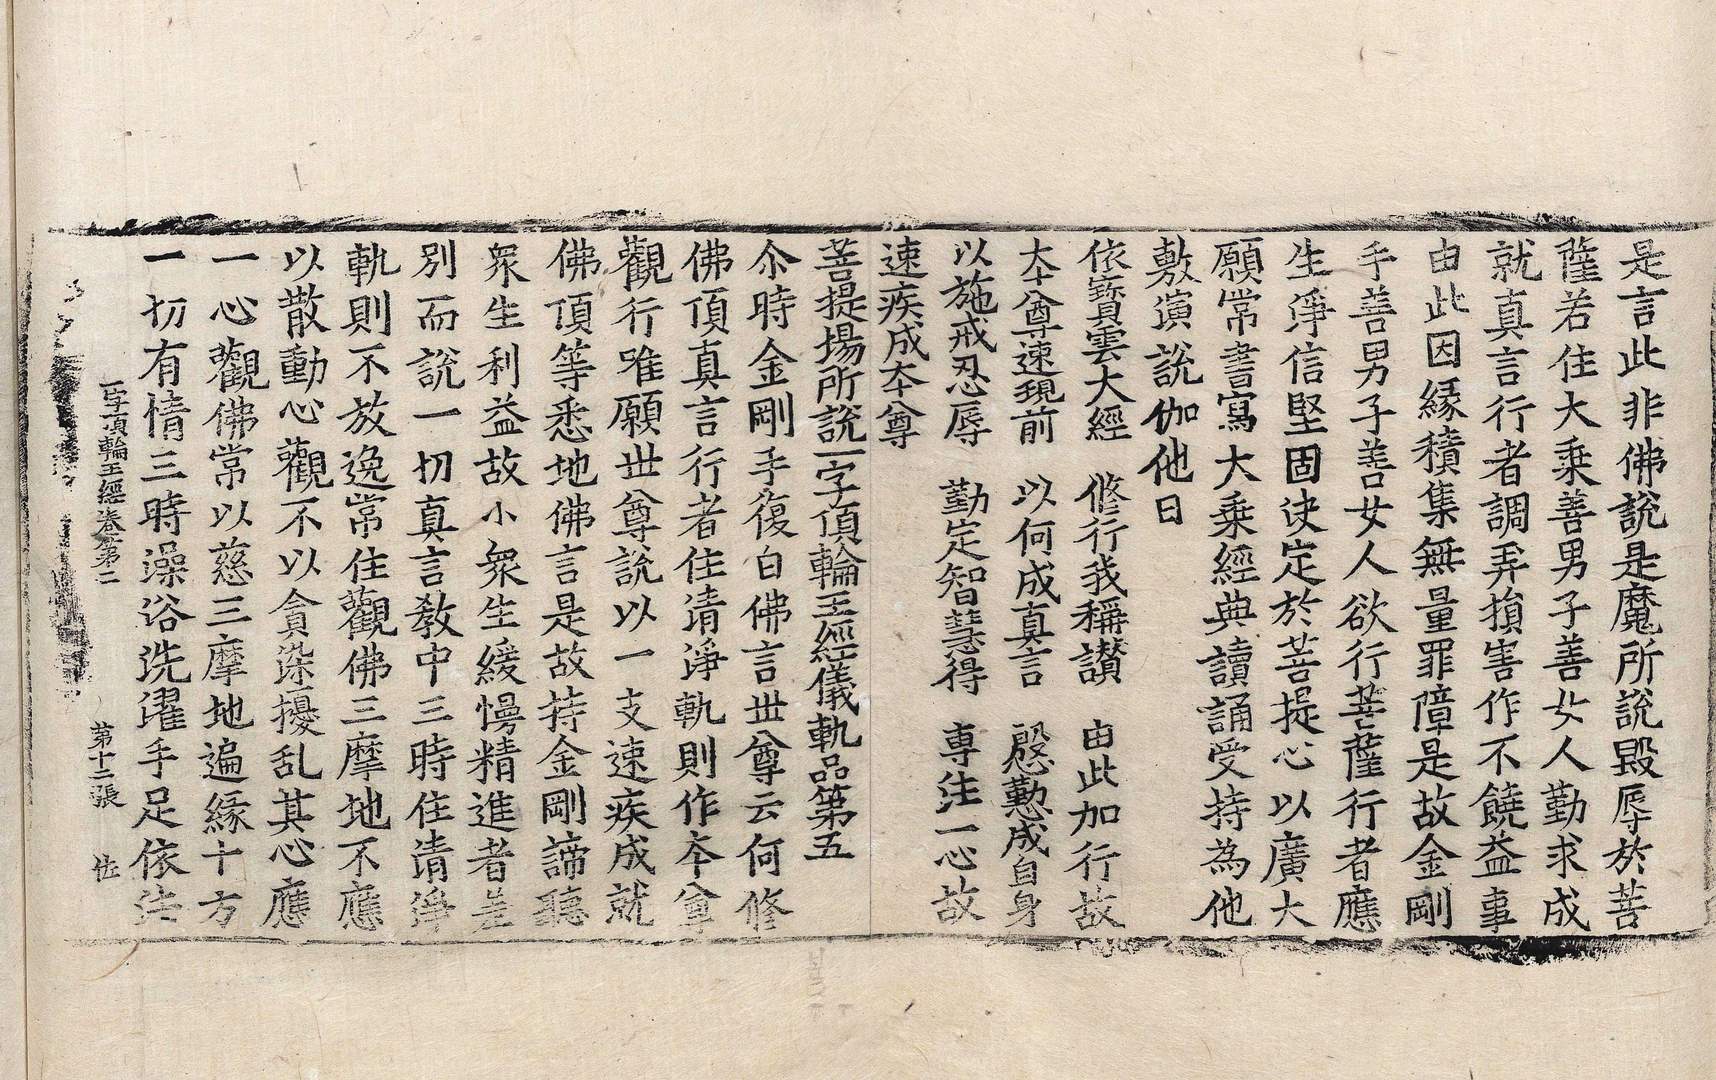 是言此非佛說是魔所說毀辱於菩
薩若住大乘善男子善女人勤求成
就真言行者調弄損害作不饒益事
由此因緣積集無量罪障是故金剛
手善男子善女人欲行菩薩行者應
生淨信堅固决定於菩提心以廣大
願常書寫大乘經典讀誦受持為他
敷演說伽他曰
依寶雲大經　修行我稱讃　由此加行故
夲尊速現前　以何成真言　慇懃成自身
以施戒忍辱　勤定智慧得　專注一心故
速疾成夲尊
菩提場所說一字頂輪王經儀軌品第五
尒時金剛手復白佛言丗尊云何修
佛頂真言行者住清淨軌則作夲尊
觀行唯願丗尊說以一支速疾成就
佛頂等悉地佛言是故持金剛諦聽
衆生利益故小衆生緩慢精進者差
別而說一切真言教中三時住清淨
軌則不放逸常住觀佛三摩地不應
以散動心觀不以貪染擾乱其心應
一心觀佛常以慈三摩地遍緣十方
一切有情三時澡浴洗濯手足依法
一字頂輪王經卷第二　第十二張